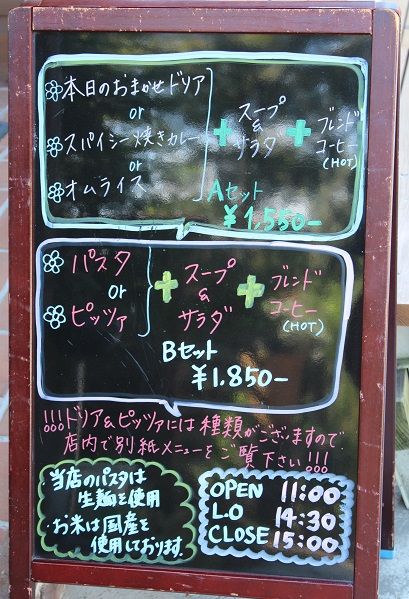 本日のおまかせドリア
or
スパイシー焼きカレー
or
オムライス
+
スープ
&
サラダ
+
ブレンド
コーヒー
(HOT)
Aセット
¥1,550-
パスタ
or
ピッツァ
+
スープ
&
サラダ
+
ブレンド
コーヒー
(HOT)
Bセット
¥1.850-
!!!ドリア&ピッツァには種類がございますので
店内で別紙メニューをご覧下さい!!!
当店のパスタは
生麺を使用
・お米は国産を
使用しております
OPEN 11:00
L.O 14:30
CLOSE 15:00